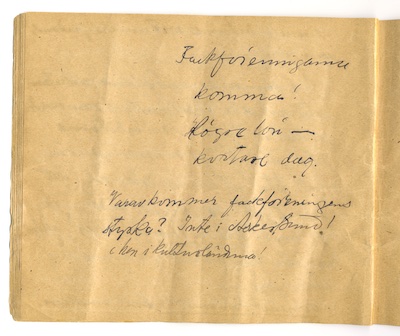 Fackföreningarna
komma!
Högre lön —
kortare dag.
Varav kommer fackföreningens
styrka? Inte i
i kulturländerna!